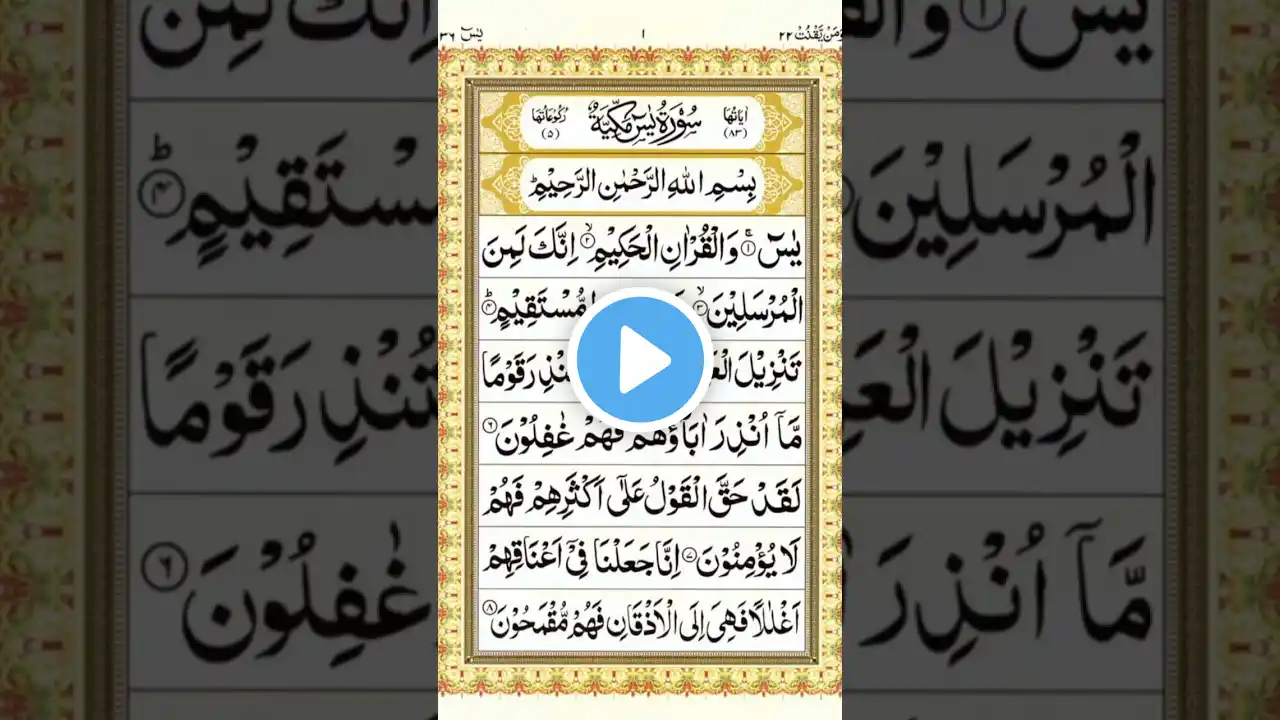 ومن يقنت ٢٢
١
يٰسٓ ٣٦
اٰيَاتُهَا (٨٣)
سُوْرَةُ يٰسٓ مَكِّيَّةٌ
رُكُوْعَاتُهَا (٥)
بِسْمِ اللّٰهِ الرَّحْمٰنِ الرَّحِيْمِ ؕ
يٰسٓ ۚ ① وَالْقُرْاٰنِ الْحَكِيْمِ ۙ ② اِنَّكَ لَمِنَ
الْمُرْسَلِيْنَ ۙ ③ مُّسْتَقِيْمٍ ؕ ④
تَنْزِيْلَ
قَوْمًا
مَّاۤ اُنْذِرَ اٰبَآؤُهُمْ فَهُمْ غٰفِلُوْنَ ⑥
لَقَدْ حَقَّ الْقَوْلُ عَلٰۤى اَكْثَرِهِمْ فَهُمْ
لَا يُؤْمِنُوْنَ ⑦ اِنَّا جَعَلْنَا فِيْۤ اَعْنَاقِهِمْ
اَغْلٰلًا فَهِىَ اِلَى الْاَذْقَانِ فَهُمْ مُّقْمَحُوْنَ ⑧